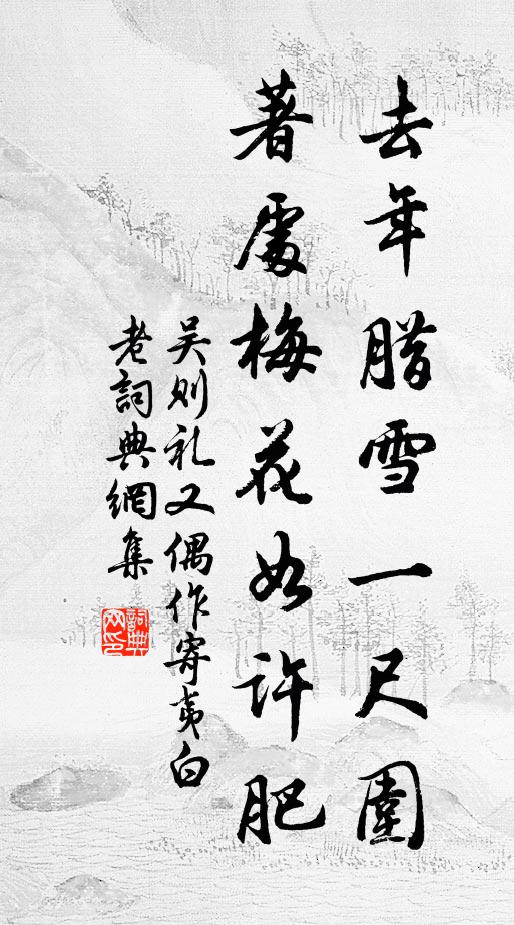 去年腊雪一尺圍
著處梅花如许肥
吴则礼又偶作寄夷白
老詞典網集
詞典网印